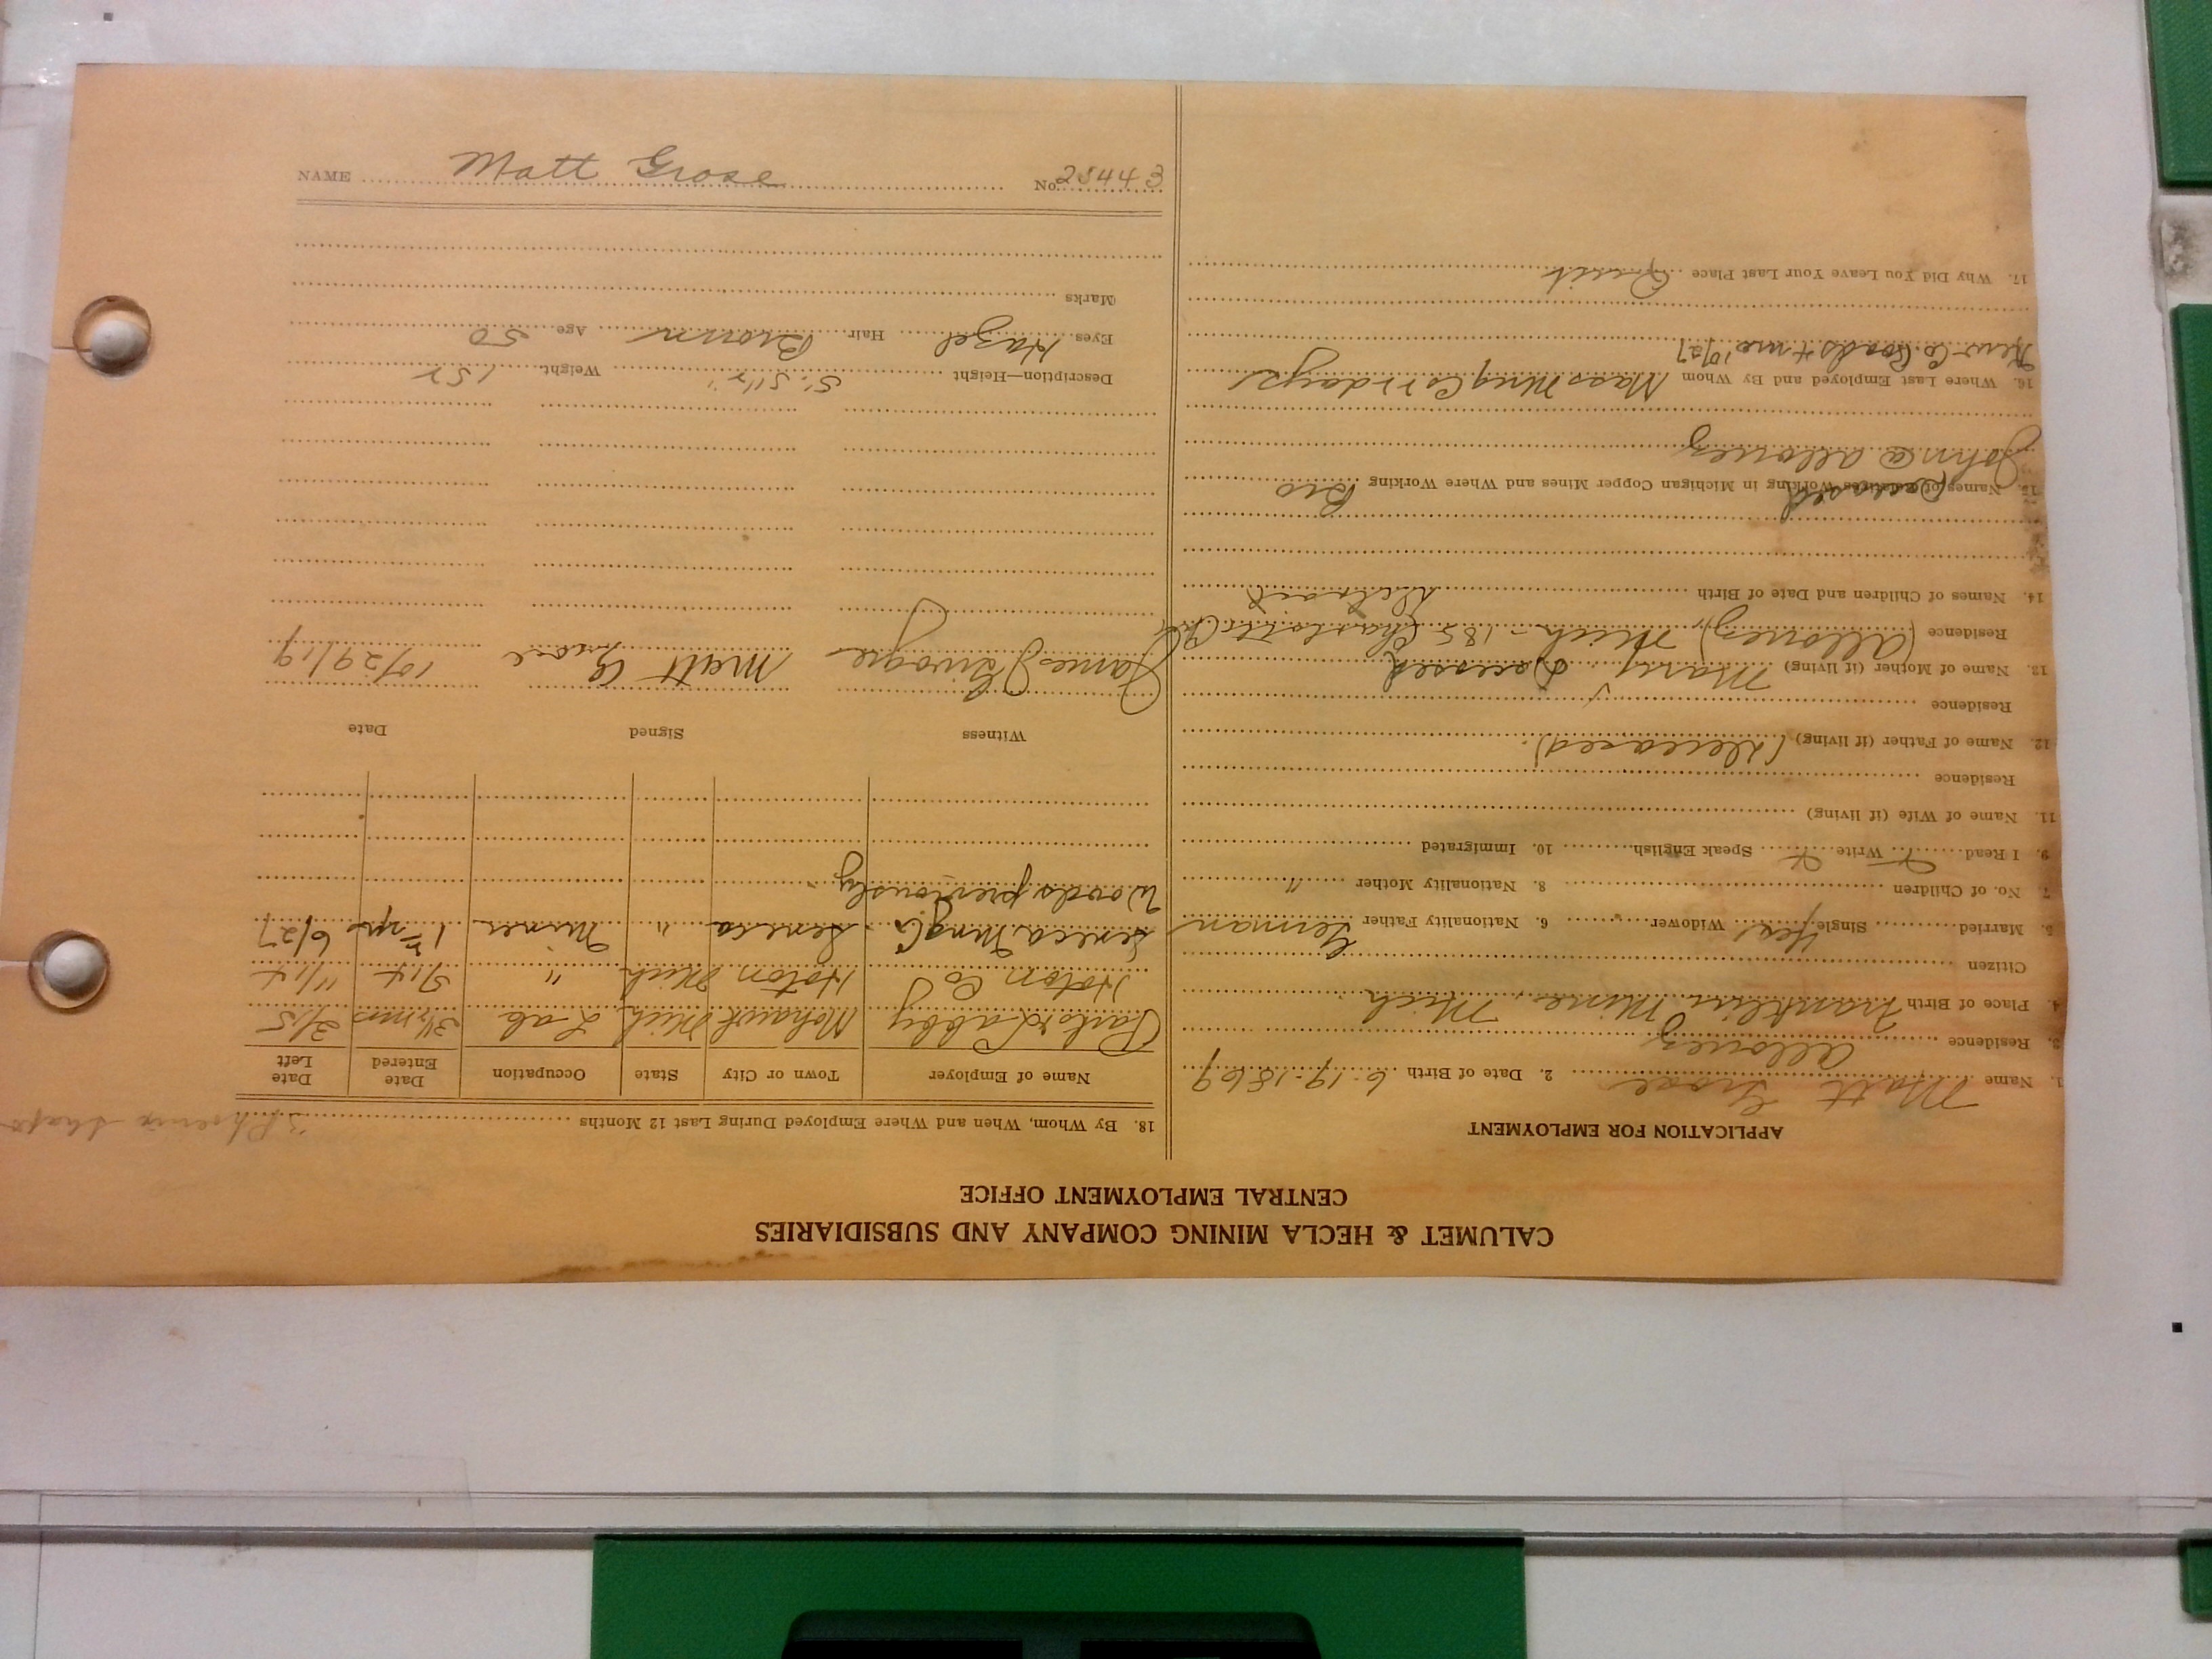 NAME Matt Grose No. 25443
CALUMET & HECLA MINING COMPANY AND SUBSIDIARIES
CENTRAL EMPLOYMENT OFFICE
APPLICATION FOR EMPLOYMENT
1. Name Matt Grose 2. Date of Birth 6-19-1869
3. Residence Allouez
4. Place of Birth Franklin Mine, Mich
Citizen
5. Married Single Yes Widower 6. Nationality Father German
7. No. of Children 8. Nationality Mother "
9. I Read Write Speak English 10. Immigrated
11. Name of Wife (if living)
Residence
12. Name of Father (if living) (Deceased)
Residence
13. Name of Mother (if living) Mary Deceased
Residence (Allouez), Mich - 185
14. Names of Children and Date of Birth
15. Names of Relatives Working in Michigan Copper Mines and Where Working Bro
Deceased
John @ Allouez
16. Where Last Employed and By Whom Mass Mng Co days
Kew Co Roads 4 mo 10/27
17. Why Did You Leave Your Last Place Quit
18. By Whom, When and Where Employed During Last 12 Months
Name of Employer Town or City State Occupation Date Entered Date Left
Mohawk Mich Lab 3½ mos 2/15
Hoton Co Hoton Mich " 9/14 11/14
Seneca Mng Co Seneca " Miner 6/27
Woods previously
Witness Signed Date
James Matt Grose 10/29/19
Description—Height 5' 5½" Weight 152
Eyes Hazel Hair Brown Age 50
Marks